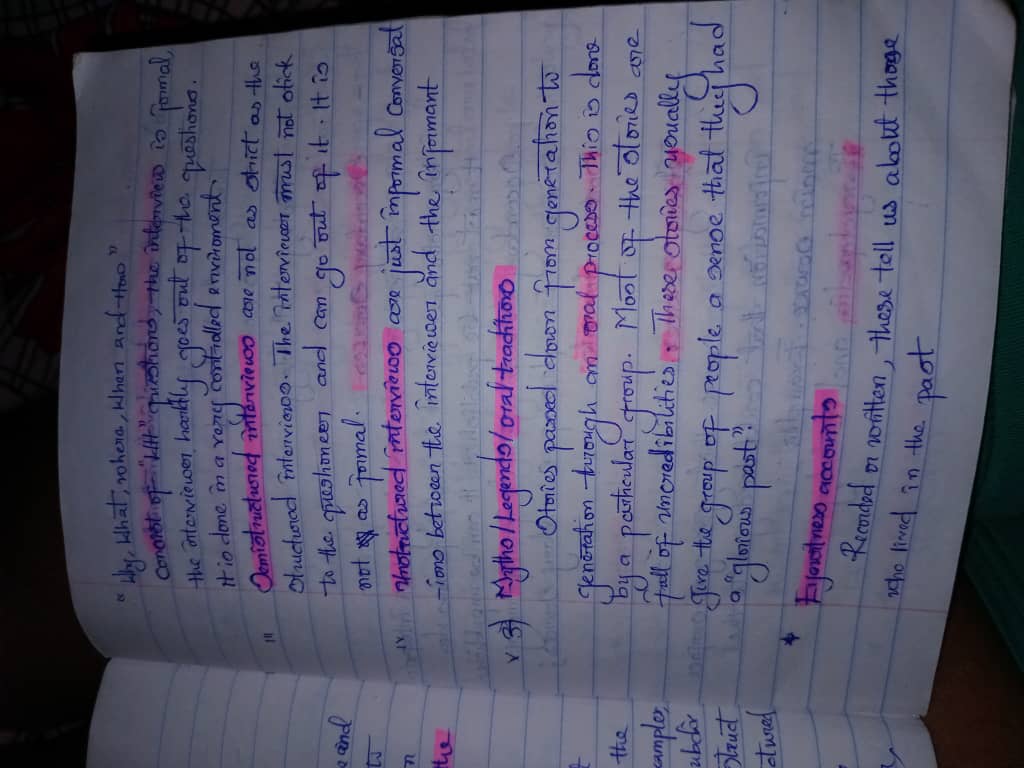 "Why, What, where, When and How"
consist of "WH" questions, the interview is formal,
the interviewer hardly goes out of the questions.
It is done in a very controlled enviroment.
iii Semistructured interviews are not as strict as the
structured interviews. The interviewer must not stick
to the questioneer and can go out of it. It is
not as formal.
iv Unstructured interviews are just informal conversat
-ions between the interviewer and the informant
v 3) Myths/Legends/oral traditions
Stories passed down from generation to
generation through an oral process. This is done
by a particular group. Most of the stories are
full of uncredibilities. These stories usually
give the group of people a sense that they had
a "glorious past".
Eyewitness accounts
Recorded or written, these tell us about those
who lived in the past
e and
to
n
the
t
the
xamples,
ubdiv
struct
ctured